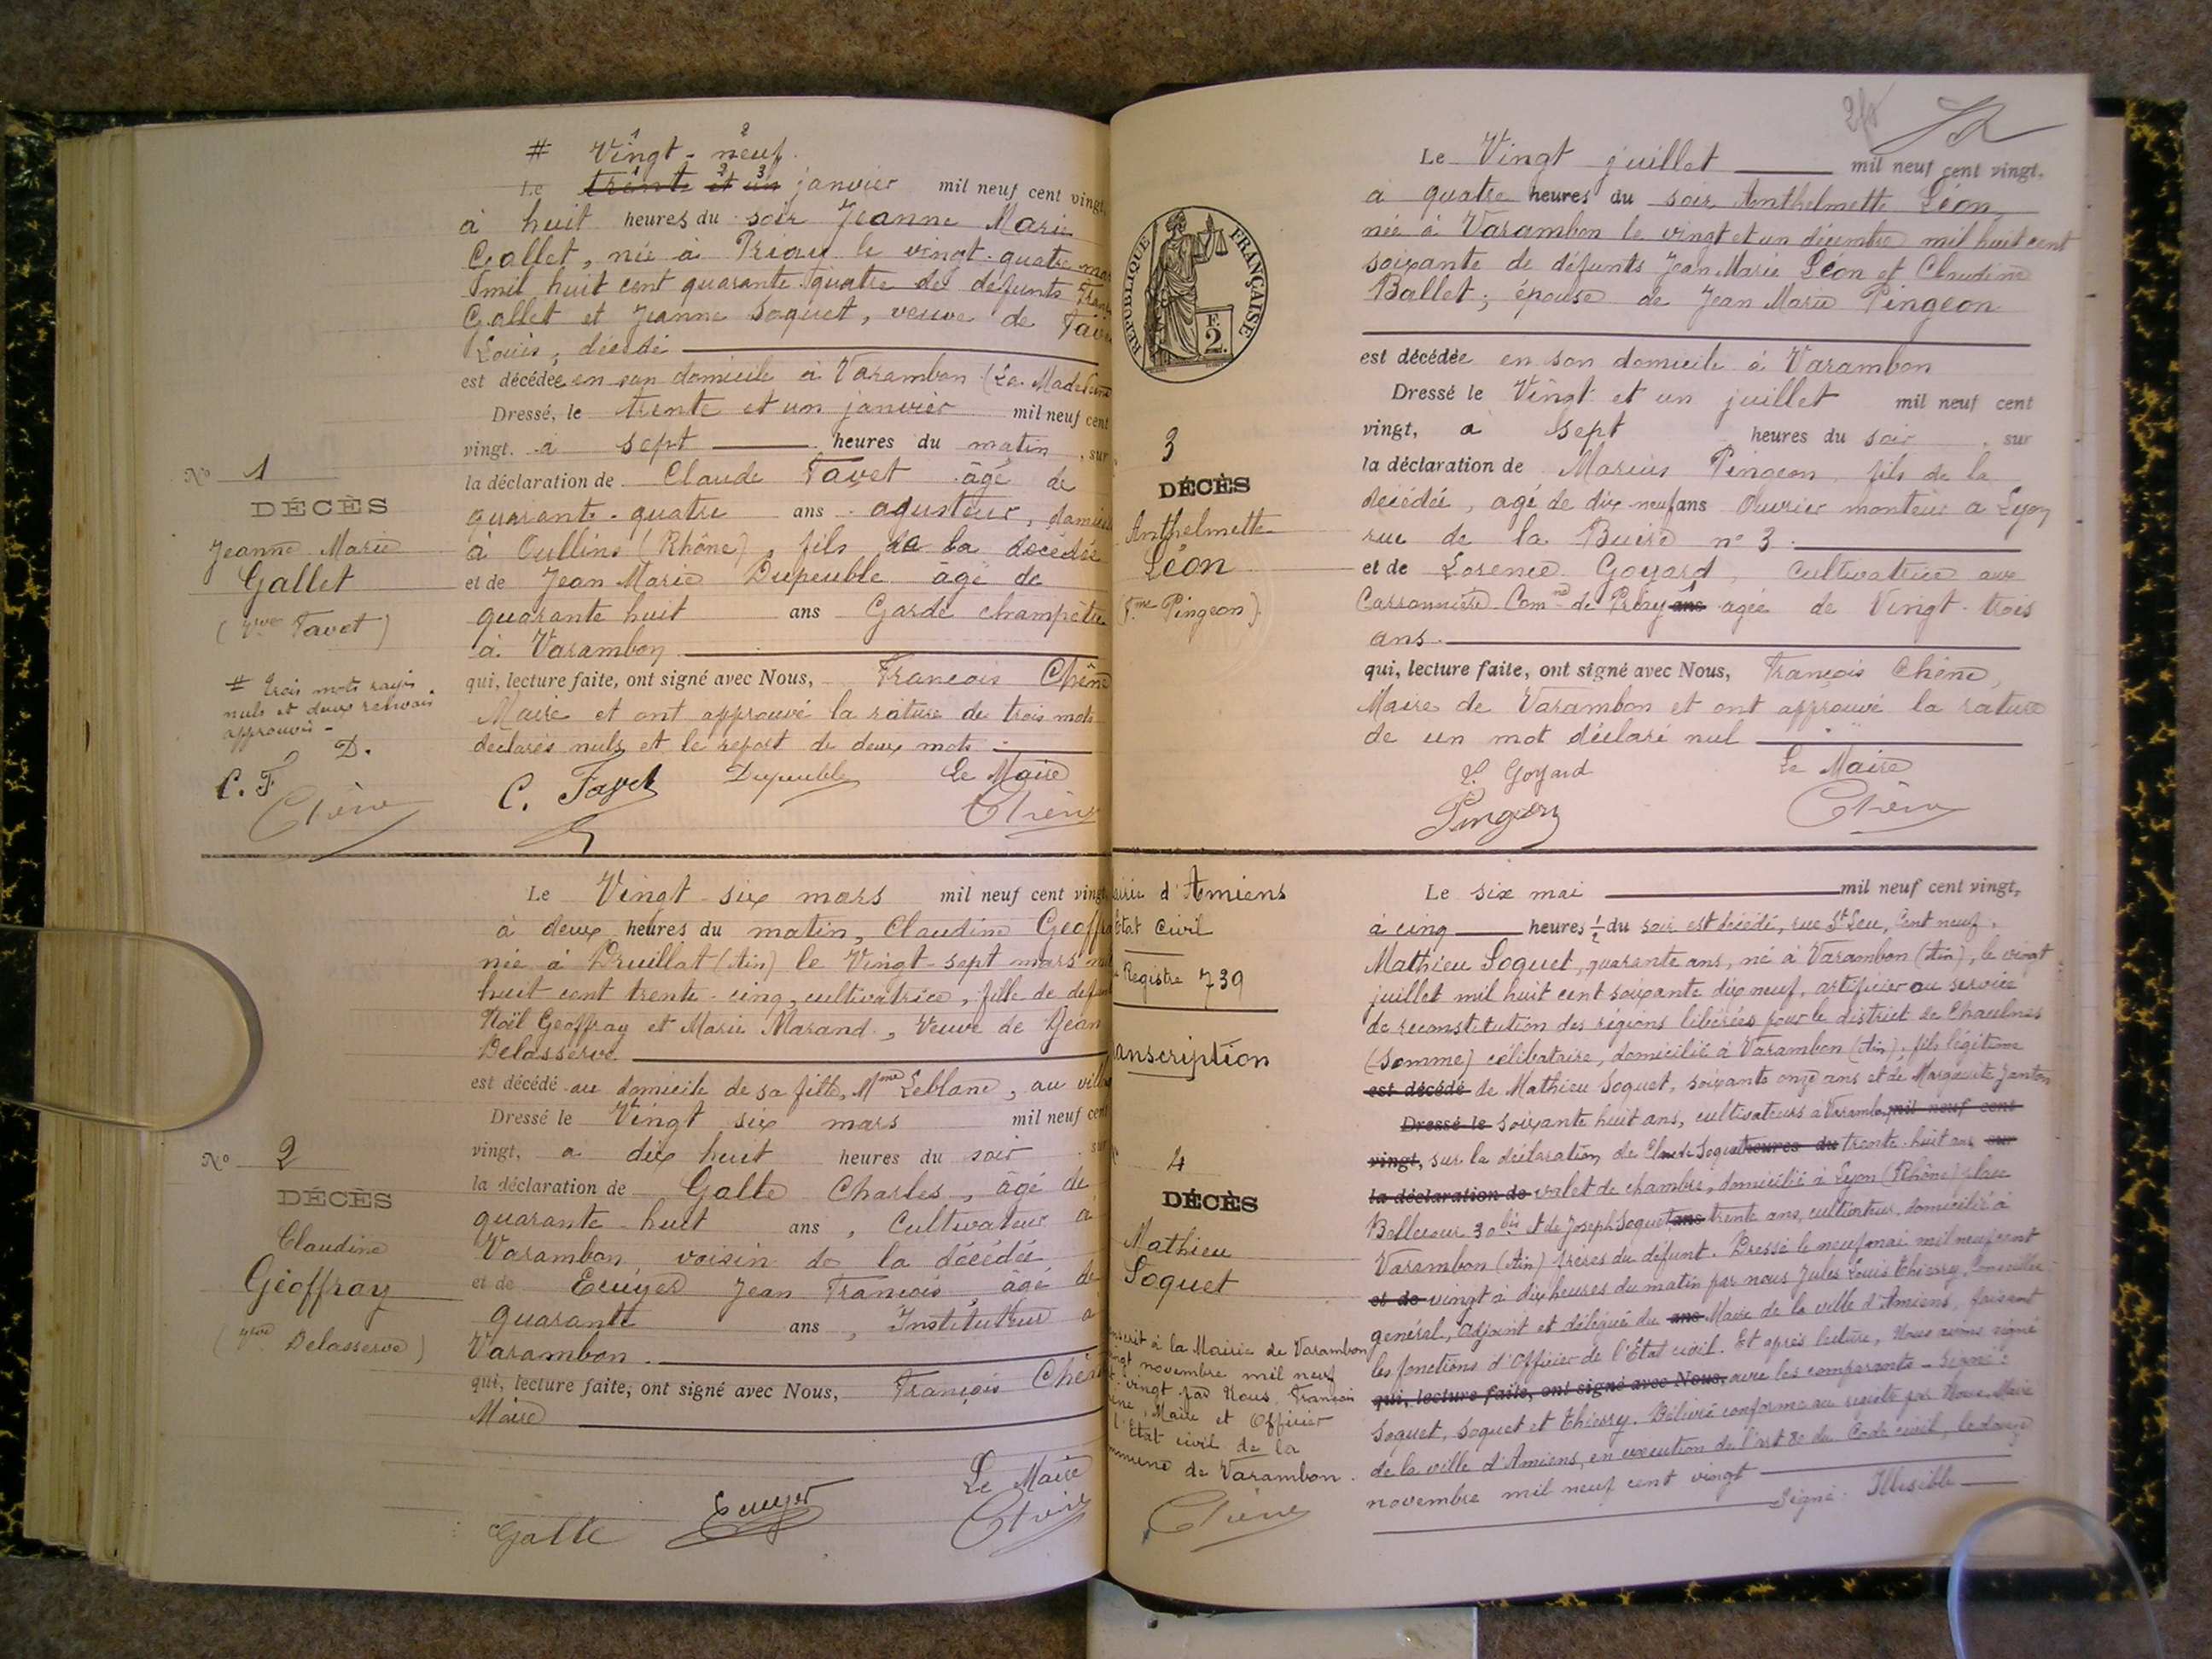 # Vingt-neuf
Le trente et un janvier mil neuf cent vingt,
à huit heures du soir Jeanne Marie
Gallet, née à Priay le vingt-quatre
mil huit cent quarante-quatre de défunts
Gallet et Jeanne Soquet, veuve de
Louis, décédé
est décédée en son domicile à Varambon (La Madeleine
Dressé, le trente et un janvier mil neuf cent
vingt. à sept heures du matin, sur
la déclaration de Claude Favet âgé de
quarante-quatre ans ajusteur,
à Oullins (Rhône), fils de la décédée
et de Jean Marie Dupeuble âgé de
quarante huit ans Garde champêtre
à Varambon
qui, lecture faite, ont signé avec Nous, François Chêne
Maire et ont approuvé la rature de trois mots
déclarés nuls et le report de deux mots
C. Favet Dupeuble Le Maire
Chêne
No 1
DÉCÈS
Jeanne Marie
Gallet
(Vve Favet)
# trois mots rayés
nuls et deux renvois
approuvés -
D.
C. F
Chêne
Le Vingt-six mars mil neuf cent vingt
à deux heures du matin, Claudine
née à Druillat (Ain) le Vingt-sept mars
huit cent trente-cinq, cultivatrice, fille de
Noël Geoffray et Marie Marand, Veuve de Jean
Delasserve
est décédé au domicile de sa fille, Mme Leblanc, au
Dressé le Vingt six mars mil neuf cent
vingt, à dix huit heures du soir, sur
la déclaration de Galle Charles, âgé de
quarante-huit ans, Cultivateur à
Varambon voisin de la décédée
et de Ecuyer Jean François, âgé de
quarante ans, Instituteur à
Varambon.
qui, lecture faite, ont signé avec Nous, François
Maire
Galle Ecuyer Le Maire
Chêne
No 2
DÉCÈS
Claudine
Géoffray
(Vve Delasserve)
Le Vingt juillet mil neuf cent vingt,
à quatre heures du soir Anthelmette Léon
née à Varambon le vingt et un décembre mil huit cent
soixante de défunts Jean Marie Léon et Claudine
Ballet; épouse de Jean Marie Pingeon
est décédée en son domicile à Varambon
Dressé le Vingt et un juillet mil neuf cent
vingt, à Sept heures du soir, sur
la déclaration de Marius Pingeon, fils de la
décédée, agé de dix-neuf ans Ouvrier monteur a Lyon
rue de la Buire n° 3.
et de Lorence Goyard, Cultivatrice aux
Carronnière Comne de Priay ans agée de Vingt-trois
ans.
qui, lecture faite, ont signé avec Nous, François Chêne,
Maire de Varambon et ont approuvé la rature
de un mot déclaré nul
L. Goyard Le Maire
Pingeon Chêne
RÉPUBLIQUE FRANÇAISE
F.
2.
3
DÉCÈS
Anthelmette
Léon
(Fme Pingeon)
d'Amiens
Etat Civil
Registre 739
Le six mai mil neuf cent vingt,
à cinq heures ½ du soir est décédé, rue St Leu, Cent neuf,
Mathieu Soquet, quarante ans, né à Varambon (Ain), le vingt
juillet mil huit cent soixante dix neuf, artificier au service
de reconstitution des régions libérées pour le district de Chaulnes
(Somme) célibataire, domicilié à Varambon (Ain), fils légitime
est décédé de Mathieu Soquet, soixante onze ans et de Marguerite Janton
Dressé le soixante huit ans, cultivateurs à Varambon mil neuf cent
vingt, sur la déclaration de Claude Soquet heures du trente-huit ans sur
la déclaration de valet de chambre, domicilié à Lyon (Rhône) place
Bellecour 30bis et de Joseph Soquet ans trente ans, cultivateur, domicilié à
Varambon (Ain) frères du défunt. Dressé le neuf mai mil neuf cent
et de vingt à dix heures du matin par nous Jules Louis Thierry, Conseiller
général, Adjoint et délégué du ans Maire de la ville d'Amiens, faisant
les fonctions d'Officier de l'Etat civil. Et après lecture, Nous avons signé
qui, lecture faite, ont signé avec Nous, avec les comparants - Signé:
Soquet, Soquet et Thierry. Délivré conforme au registre par Nous, Maire
de la ville d'Amiens, en exécution de l'art 80 du Code civil, le douze
novembre mil neuf cent vingt
Signé: Illisible
4
DÉCÈS
Mathieu
Soquet
à la Mairie de Varambon
novembre mil neuf
vingt par Nous François
Maire et Officier
l'Etat civil de la
de Varambon.
Chêne